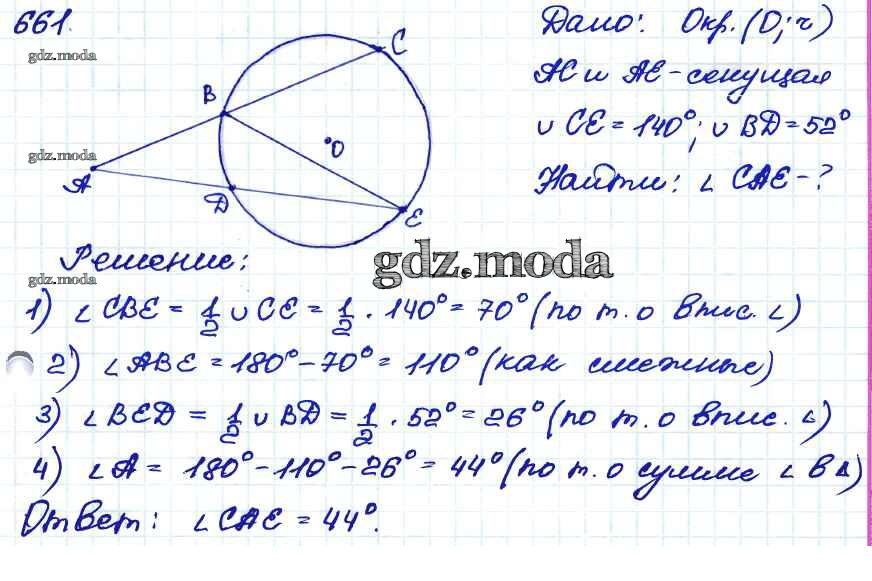 661.
gdz.moda
C
B
O
gdz.moda
A
D
E
Дано: Окр. (O; r)
AC и AE - секущая
∪ CE = 140°; ∪ BD = 52°
Найти: ∠ CAE - ?
Решение:
gdz.moda
gdz.moda
1) ∠ CBE = 1/2 ∪ CE = 1/2 · 140° = 70° (по т. о впис. ∠)
2) ∠ ABE = 180° - 70° = 110° (как смежные)
3) ∠ BED = 1/2 ∪ BD = 1/2 · 52° = 26° (по т. о впис. ∠)
4) ∠ A = 180° - 110° - 26° = 44° (по т. о сумме ∠ в Δ)
Ответ: ∠ CAE = 44°.